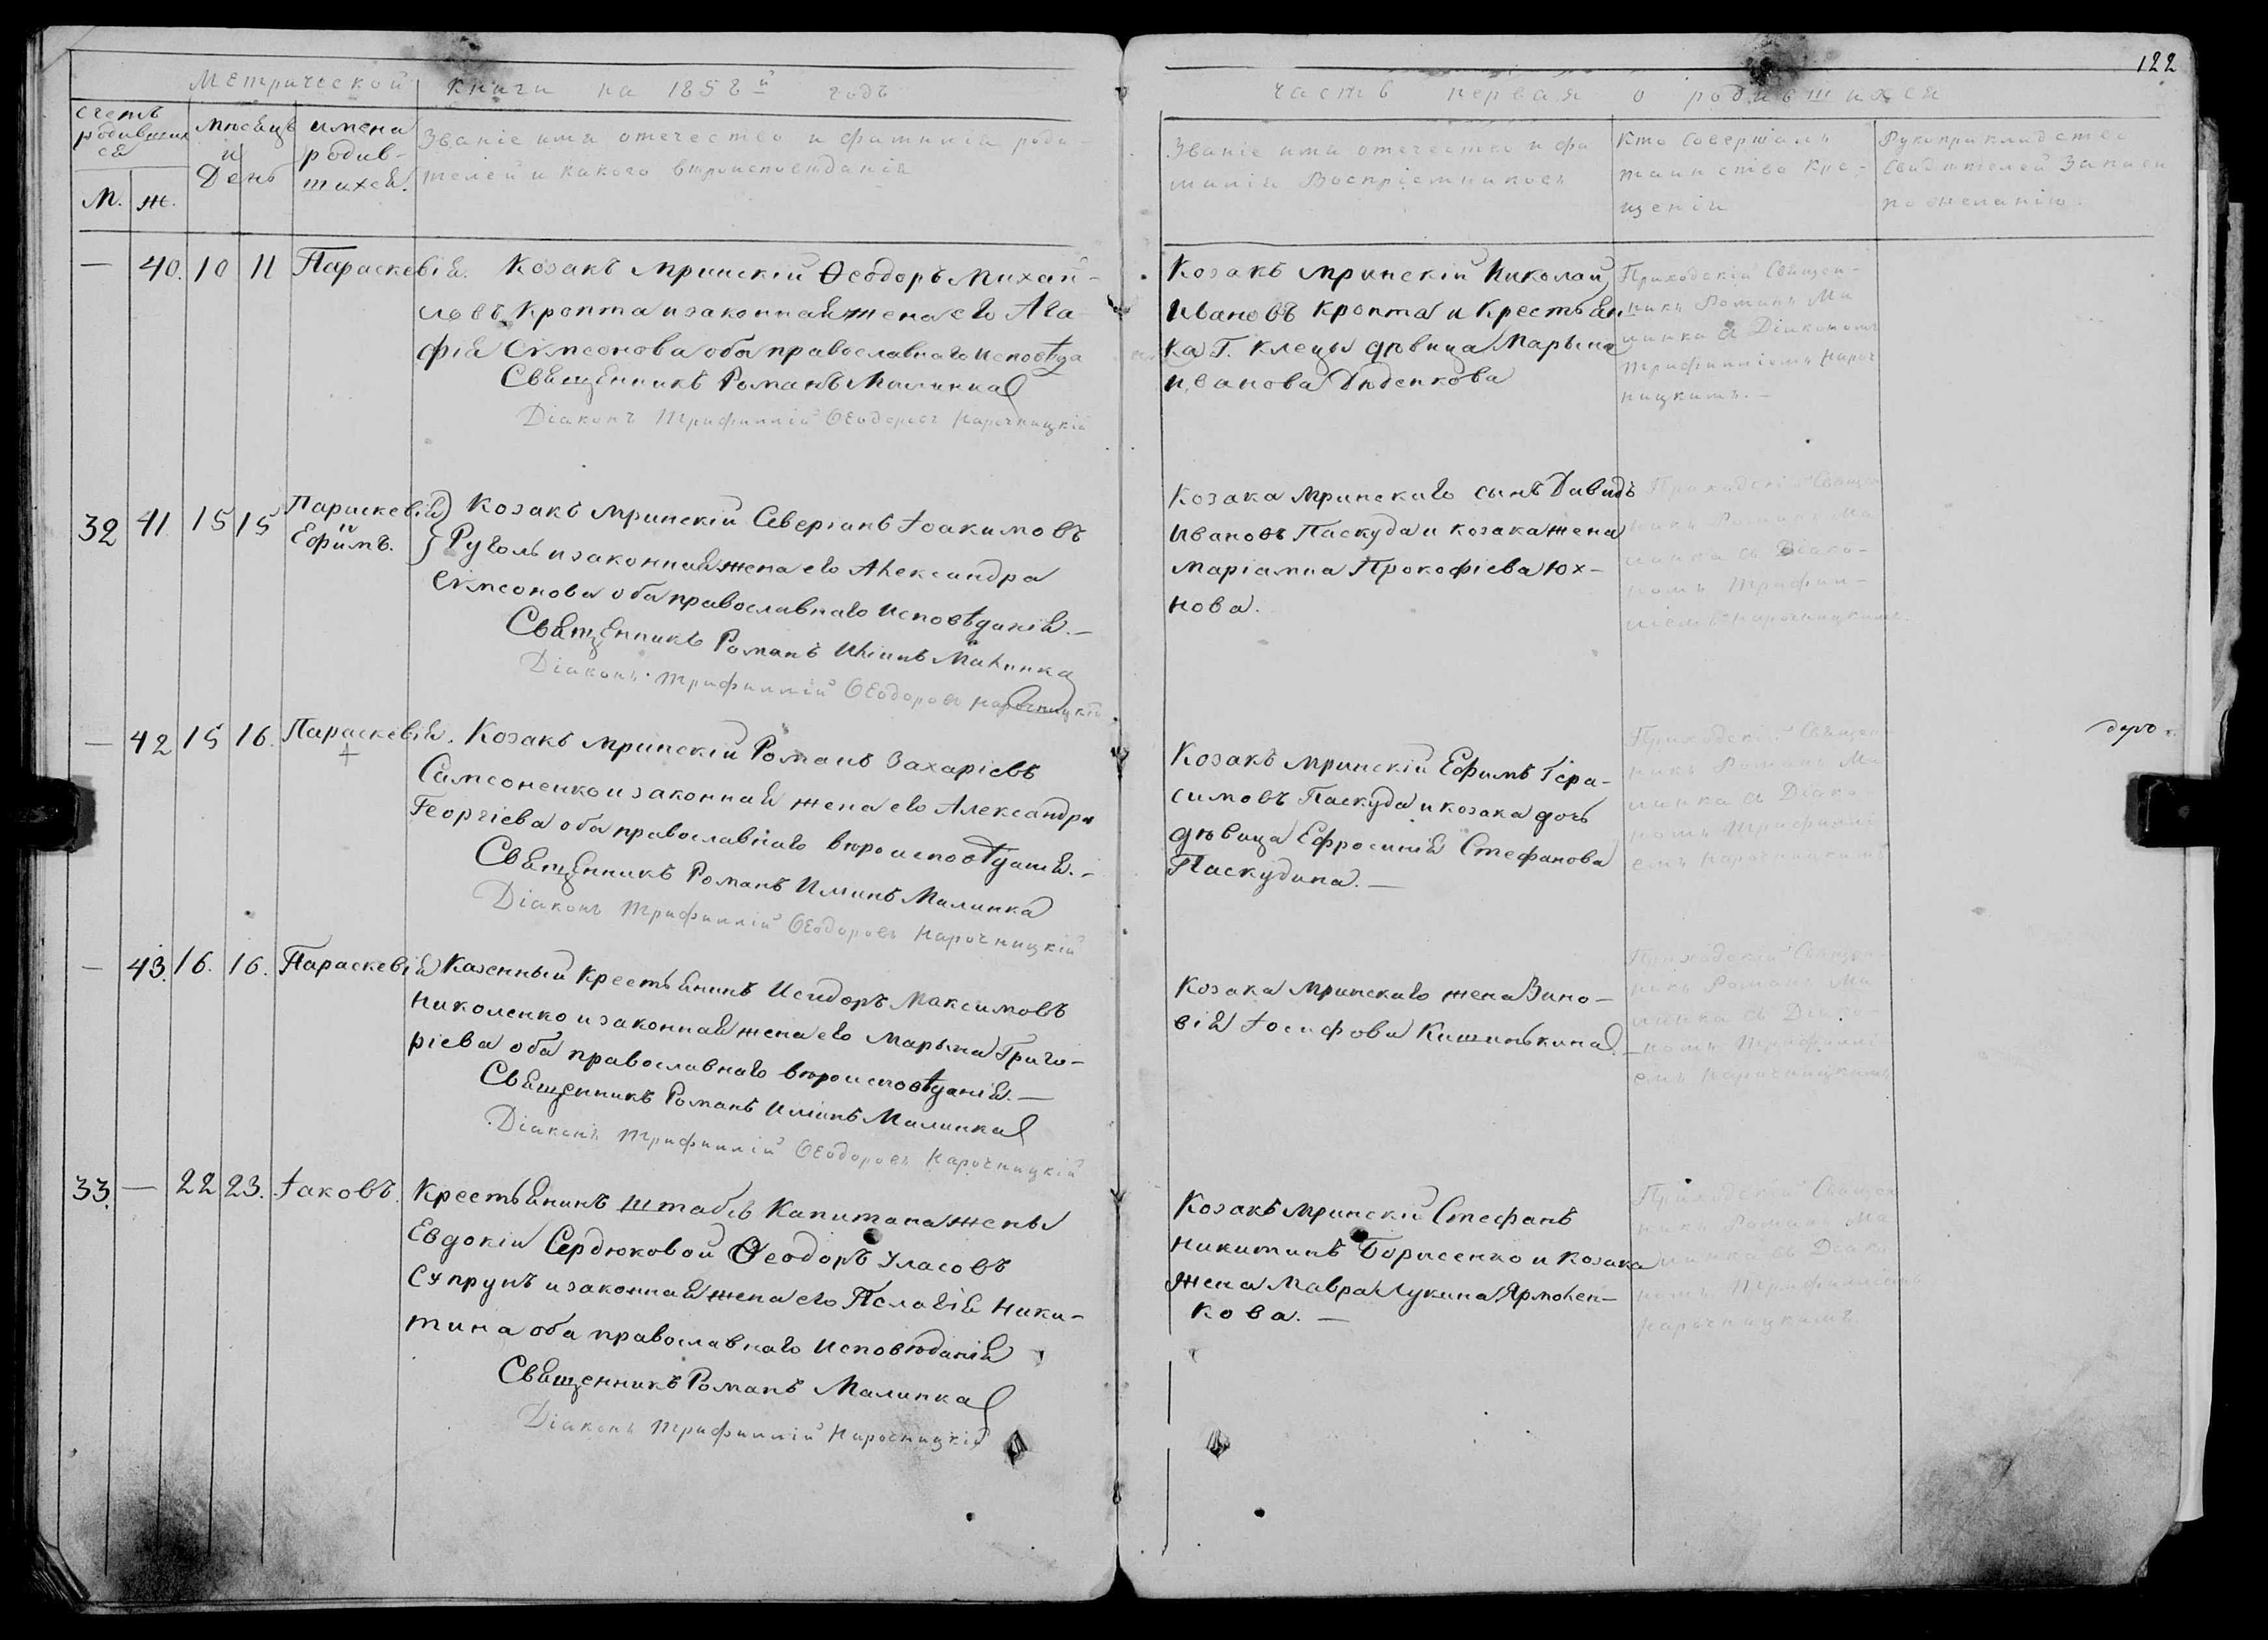 122
Метрической книги на 1858й годъ
часть первая о родившихся
счетъ родившихся
М. Ж.
мѣсяцъ и День
имена родившихся.
Званіе имя отечество и фамилія роди-
телей и какого вѣроисповѣданія
Званіе имя отечество и фа
милія Воспріемниковъ
Кто Совершалъ
таинство Кре-
щенія
Рукоприкладство
Свидѣтелей Записи
по желанію.
— 40. 10 11 Параскевія. Козакъ мринскій Ѳеодоръ Михай-
ловъ Кропта и законная жена его Ага
фія Сѵмеонова оба православнаго исповѣда
Священникъ Романъ Малинка
Діаконъ Трифиллій Ѳеодоровъ Нарочницкій
Козакъ мринскій Николай
Ивановъ Кропта и Крестьян
ка Г. Клецы дѣвица Марьина
Иванова Дѣденкова
Приходскій Священ-
никъ Романъ Ма
линка съ Діакономъ
Трифилліемъ Нароч
ницкимъ. —
32 41 15 15 Параскевія
Ефимъ. Козакъ мринскій Северіанъ Іоакимовъ
Руголь и законная жена его Александра
Сѵмеонова оба православнаго исповѣданія. —
Священникъ Романъ Ильинъ Малинка
Діаконъ Трифиллій Ѳеодоровъ Нарочницкій
Козака мринскаго сынъ Давидъ
Ивановъ Паскуда и козака жена
Маріамна Прокофіева Юх-
нова.
Приходскій Священ
никъ Романъ Ма
линка съ Діако-
номъ Трифил-
ліемъ Нарочницкимъ.
— 42 15 16. Параскевія.
+
Козакъ мринскій Романъ Захаріевъ
Самсоненко и законная жена его Александра
Георгіева оба православнаго вѣроисповѣданія. –
Священникъ Романъ Илинъ Малинка
Діаконъ Трифиллій Ѳеодоровъ Нарочницкій
Козакъ мринскій Ефимъ Гера-
симовъ Паскуда и козака дочь
дѣвица Ефросинія Стефанова
Паскудина. —
Приходскій Священ
никъ Романъ Ма
линка съ Діако
номъ Трифиллі
емъ Нарочницкимъ
— 43. 16. 16. Параскевія Казенный Крестьянинъ Исидоръ Максимовъ
Николенко и законная жена его Марьина Григо-
ріева оба православнаго вѣроисповѣданія. —
Священникъ Романъ Илинъ Малинка
Діаконъ Трифиллій Ѳеодоровъ Нарочницкій
Козака мринскаго жена Зино-
вія Іосифова Кишинькина.
Приходскій Священ
никъ Романъ Ма
линка съ Діако-
номъ Трифиллі
емъ Нарочницкимъ
33. — 22 23. Іаковъ. Крестьянинъ штабсъ Капитана жены
Евдокіи Сердюковой Ѳеодоръ Уласовъ
Супрунъ и законная жена его Пелагія Ники-
тина оба православнаго исповѣданія
Священникъ Романъ Малинка
Діаконъ Трифиллій Нарочницкій
Козакъ мринскій Стефанъ
Никитинъ Борисенко и козака
жена Мавра Лукина Ярмолен-
кова. —
Приходскій Священ
никъ Романъ Ма
линка съ Діако
номъ Трифилліемъ
Нарочницкимъ